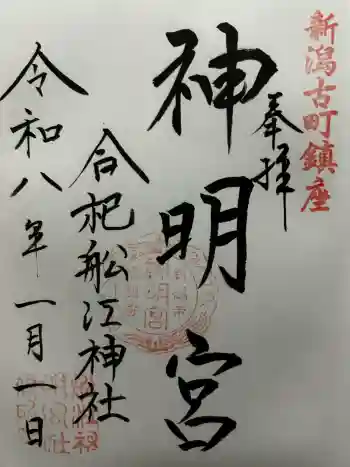 新潟古町鎮座
奉拝
神明宮
合祀船江神社
令和八年一月一日